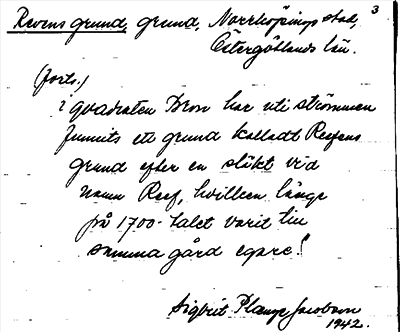 3
Revens grund, grund, Norrköpings stad,
Östergötlands län.
(forts.)
i qvadraten Bron har uti strömmen
funnits ett grund kalladt Reefens
grund efter en släkt vid
namn Reef, hvilken länge
på 1700-talet varit till
samma gård egare!
Sigbrit Plænge Jacobson
1942.